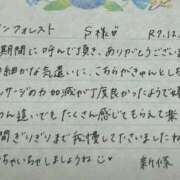 ンフォレスト S様♡ R7.12.
期間に呼んで頂き、ありがとうござい
細かな気遣いに、こちらがきゅんとし
ッサージの力加減が丁度良かったようで嬉
めん遠いでも、たくさん感じてもらえて楽
間ぎりぎりまで我慢してたさいましたね
ちゃいちゃしましょうね☺ 新條